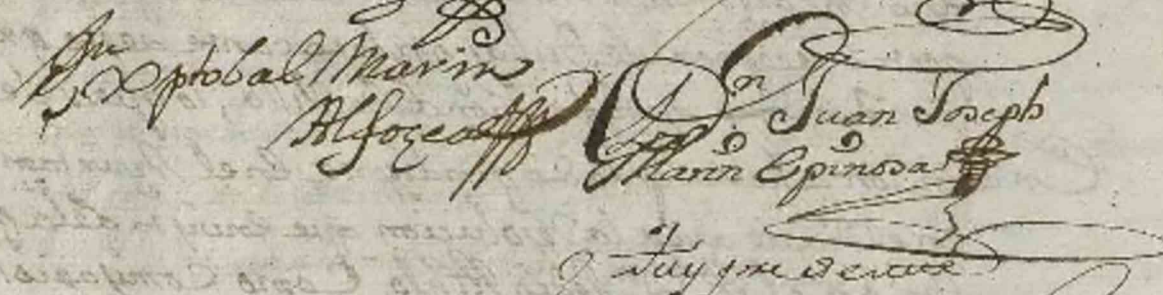 Dn Xptobal Marin
Alfozea
Dn Juan Joseph
Marin Espinosa
fuy presente